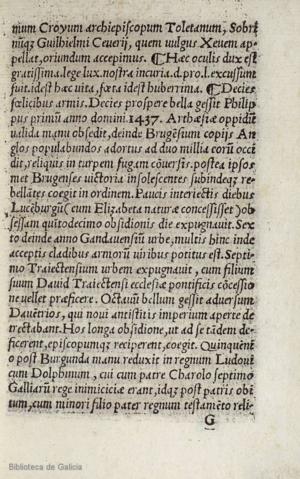 nium Croyum archiepiscopum Toletanum, Sobri
nũqȝ Guilhielmi Ceuerij, quem uulgus Xeuem ap-
pellat, oriundum accepimus. ¶ Hæc oculis dux est
gratissima. lege lux. nostra incuria. d. pro. l. excussunt
fuit. idest hæc uita, fœta idest huberrima. ¶ Decies
fœlicibus armis. Decies prospere bella gessit Philip
pus primũ anno domini. 1437. Arthæsiæ oppidũ
ualida manu obsedit, deinde Brugẽsium copijs An
glos populabundos adortus ad duo millia eorũ occi
dit, reliquis in turpem fugam cõuersis. postea ipsos
met Brugenses uictoria insolescentes subindeqȝ re-
bellãtes coegit in ordinem. Paucis interiectis diebus
Lucẽburgũ (cum Elizabeta naturæ concessisset) ob
sessam quĩtodecimo obsidionis die expugnauit. Sex
to deinde anno Gandauensiũ urbe, multis hinc inde
acceptis cladibus armorũ uiribus potitus est. Septi-
mo Traiectensium urbem expugnauit, cum filium
suum Dauid Traiectensi ecclesiæ pontificis cõcessio
ne uellet præficere. Octauũ bellum gessit aduersum
Dauẽtrios, qui noui antistitis imperium aperte de-
trectabant. Hos longa obsidione, ut ad se tãdem de-
ficerent, episcopumqȝ reciperent, coegit. Quinquẽni
o post Burgunda manu reduxit in regnum Ludoui
cum Dolphinum, cui cum patre Charolo septimo
Galliarũ rege inimiciciæ erant, idqȝ post patris obi
tum, cum minori filio pater regnum testamẽto reli-
G
Biblioteca de Galicia